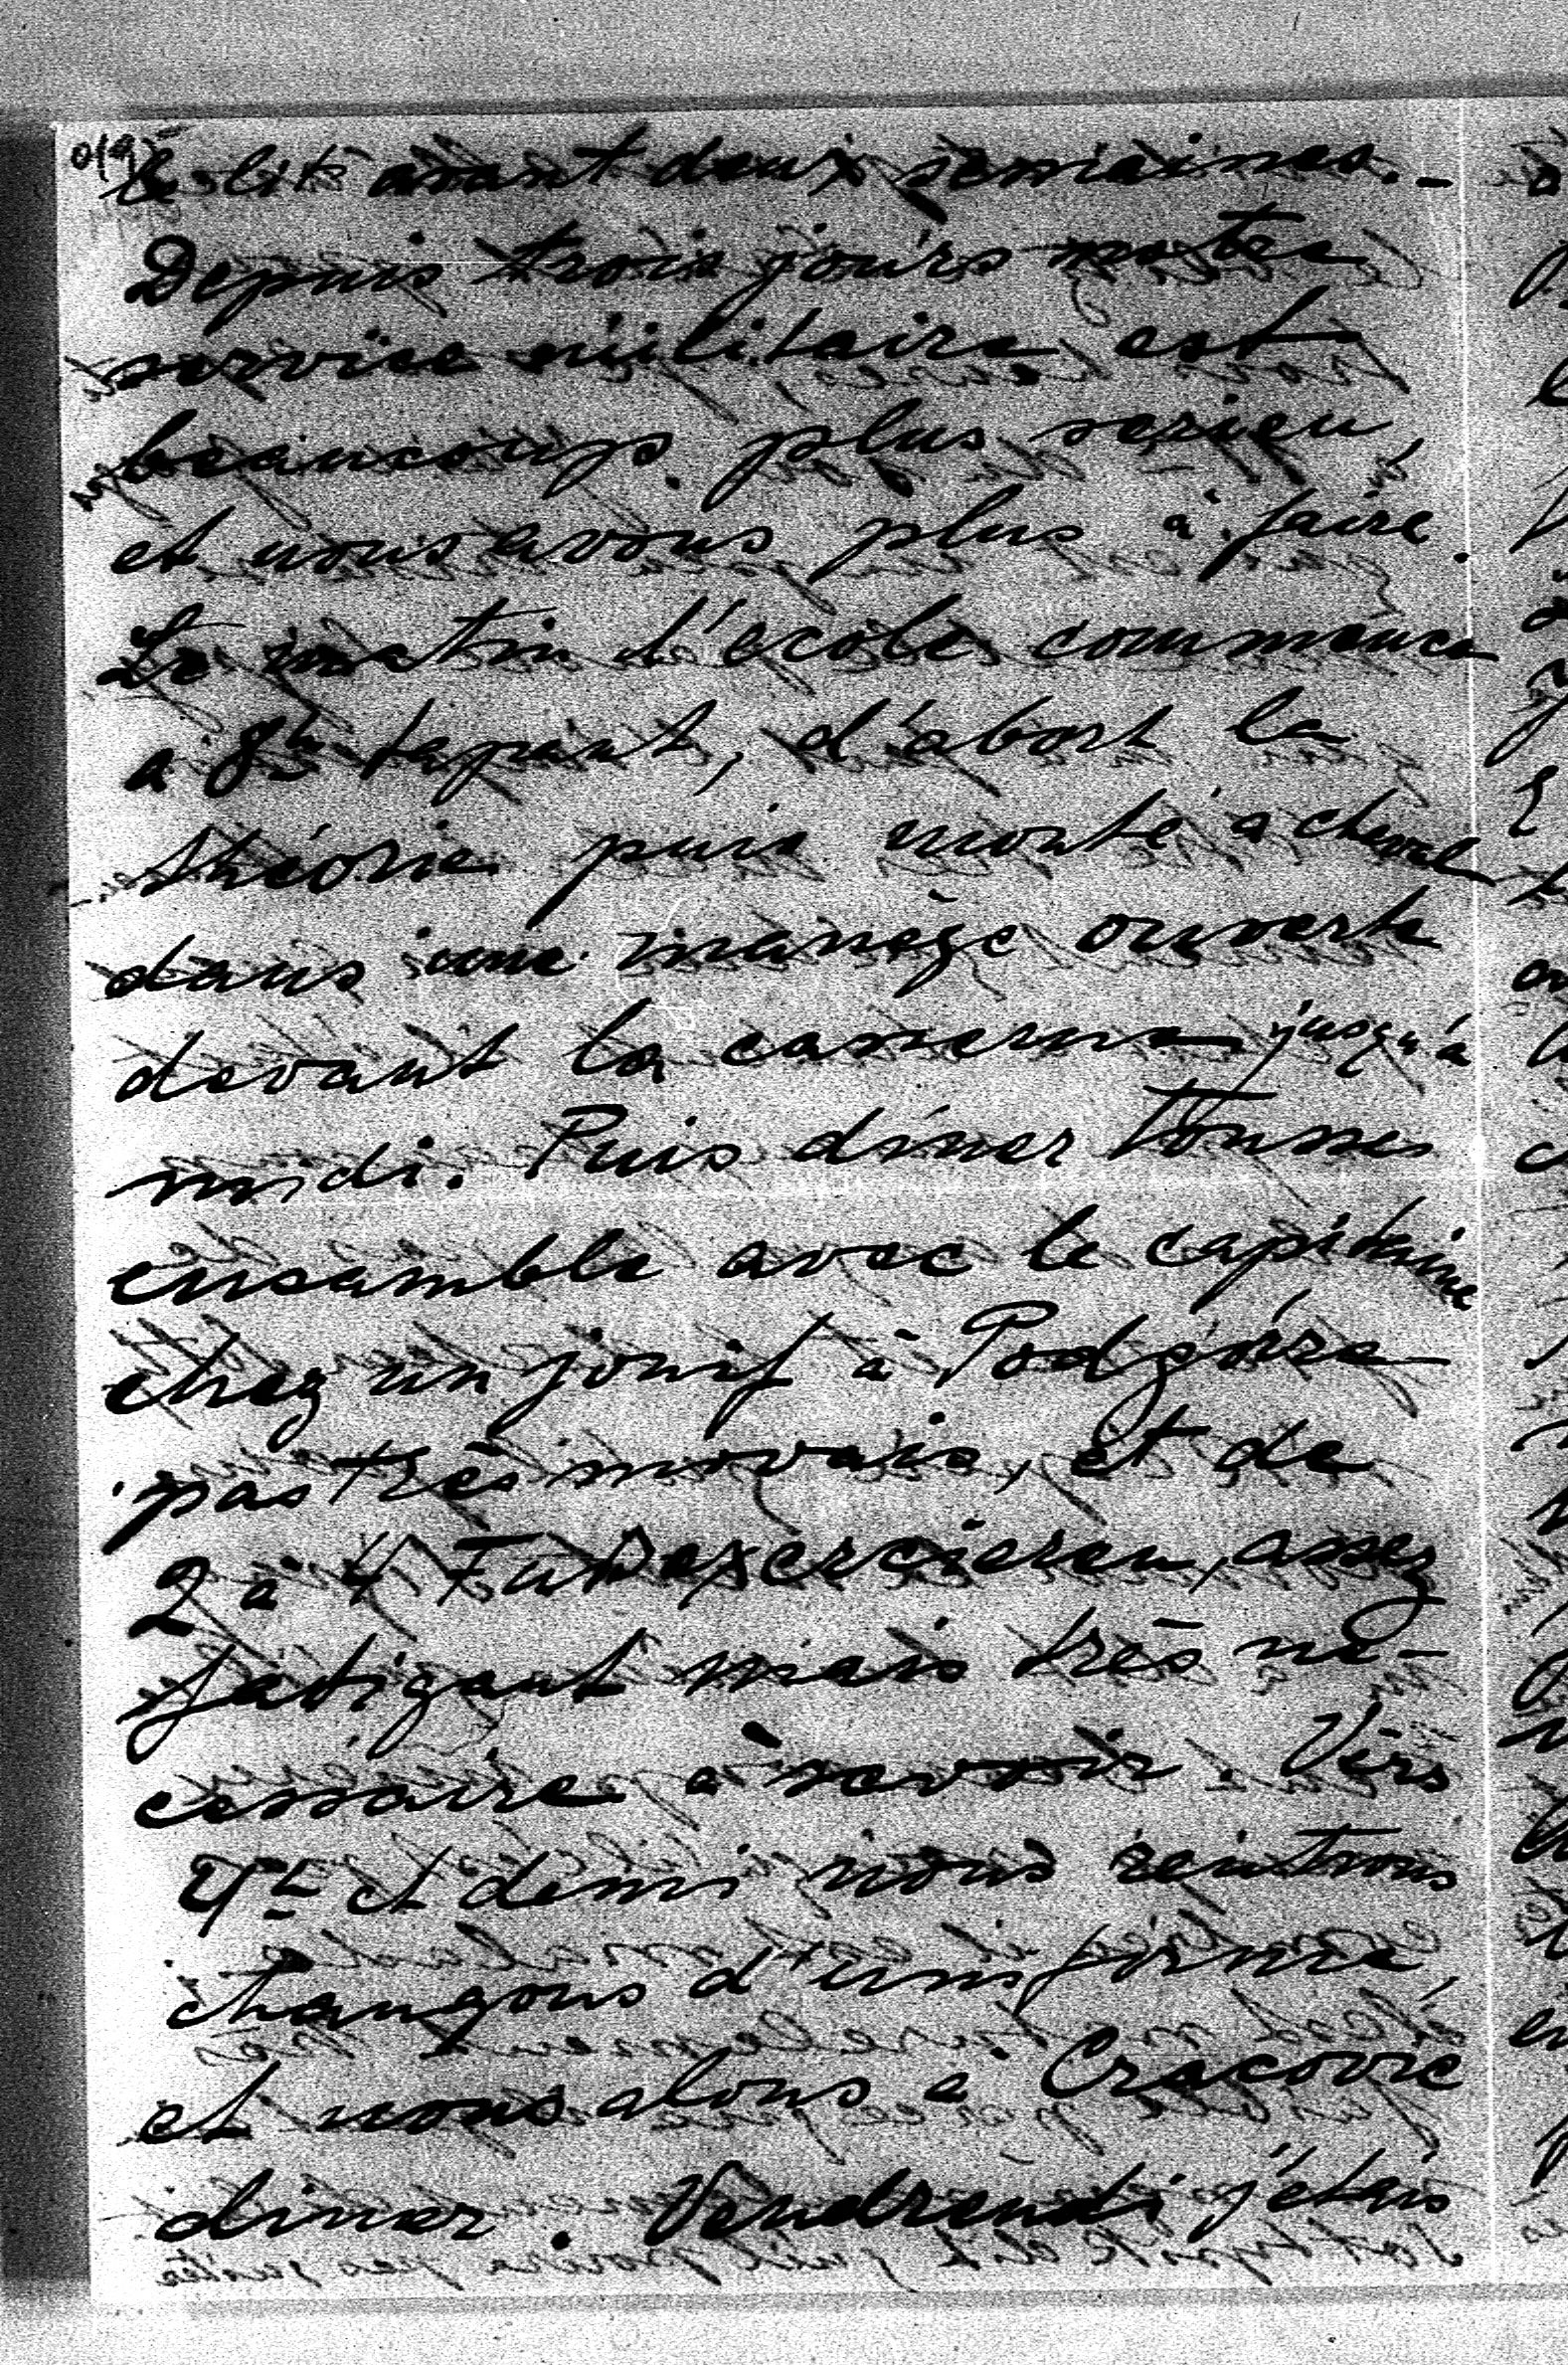 le lit avant deux semaines. -
Depuis trois jours notre
service militaire est
beaucoups plus serieu,
et nous avons plus à faire.
Le matin l'école commence
a 8h tapant, d'abort la
théorie puis monté à cheval
dans une manège ouverte
devant la caserne jusqu'à
midi. Puis diner tousses
ensamble avec le capitaine
chez un jouif à Podgórze
pas très movais, et de
2 à 4 Fuhsexercieren, assez
fatigant mais très né-
cessaire à savoir. Vers
4h et demi nous rentrons
changons d'uniforme,
et nous alons a Cracovie
diner. Vendrendi j'étais